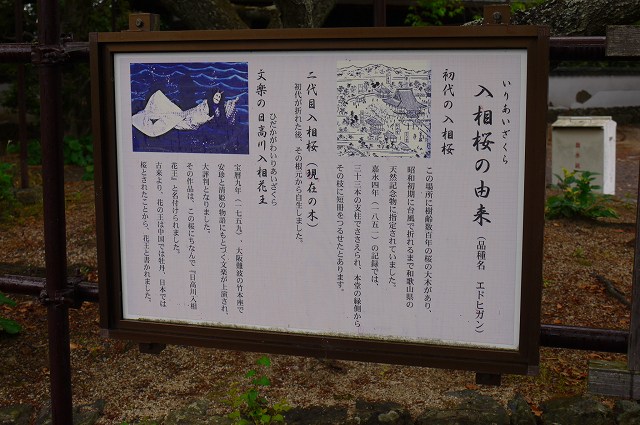 いりあいざくら
入相桜の由来（品種名　エドヒガン）
初代の入相桜
この場所に樹齢数百年の桜の大木があり、
昭和初期に台風で折れるまで和歌山県の
天然記念物に指定されていました。
嘉永四年（一八五一）の記録では、
三十三本の支柱でささえられ、本堂の縁側から
その枝に短冊をつるせたとあります。
二代目入相桜（現在の木）
初代が折れた後、その根元から自生しました。
ひだかがわいりあいざくら
文楽の日高川入相花王
宝暦九年（一七五九）、大阪難波の竹本座で
安珍と清姫の物語にもとづく文楽が上演され、
大評判となりました。
その作品は、この桜にちなんで『日高川入相
花王』と名付けられました。
古来より、花の王は中国では牡丹、日本では
桜とされたことから、花王と書かれました。